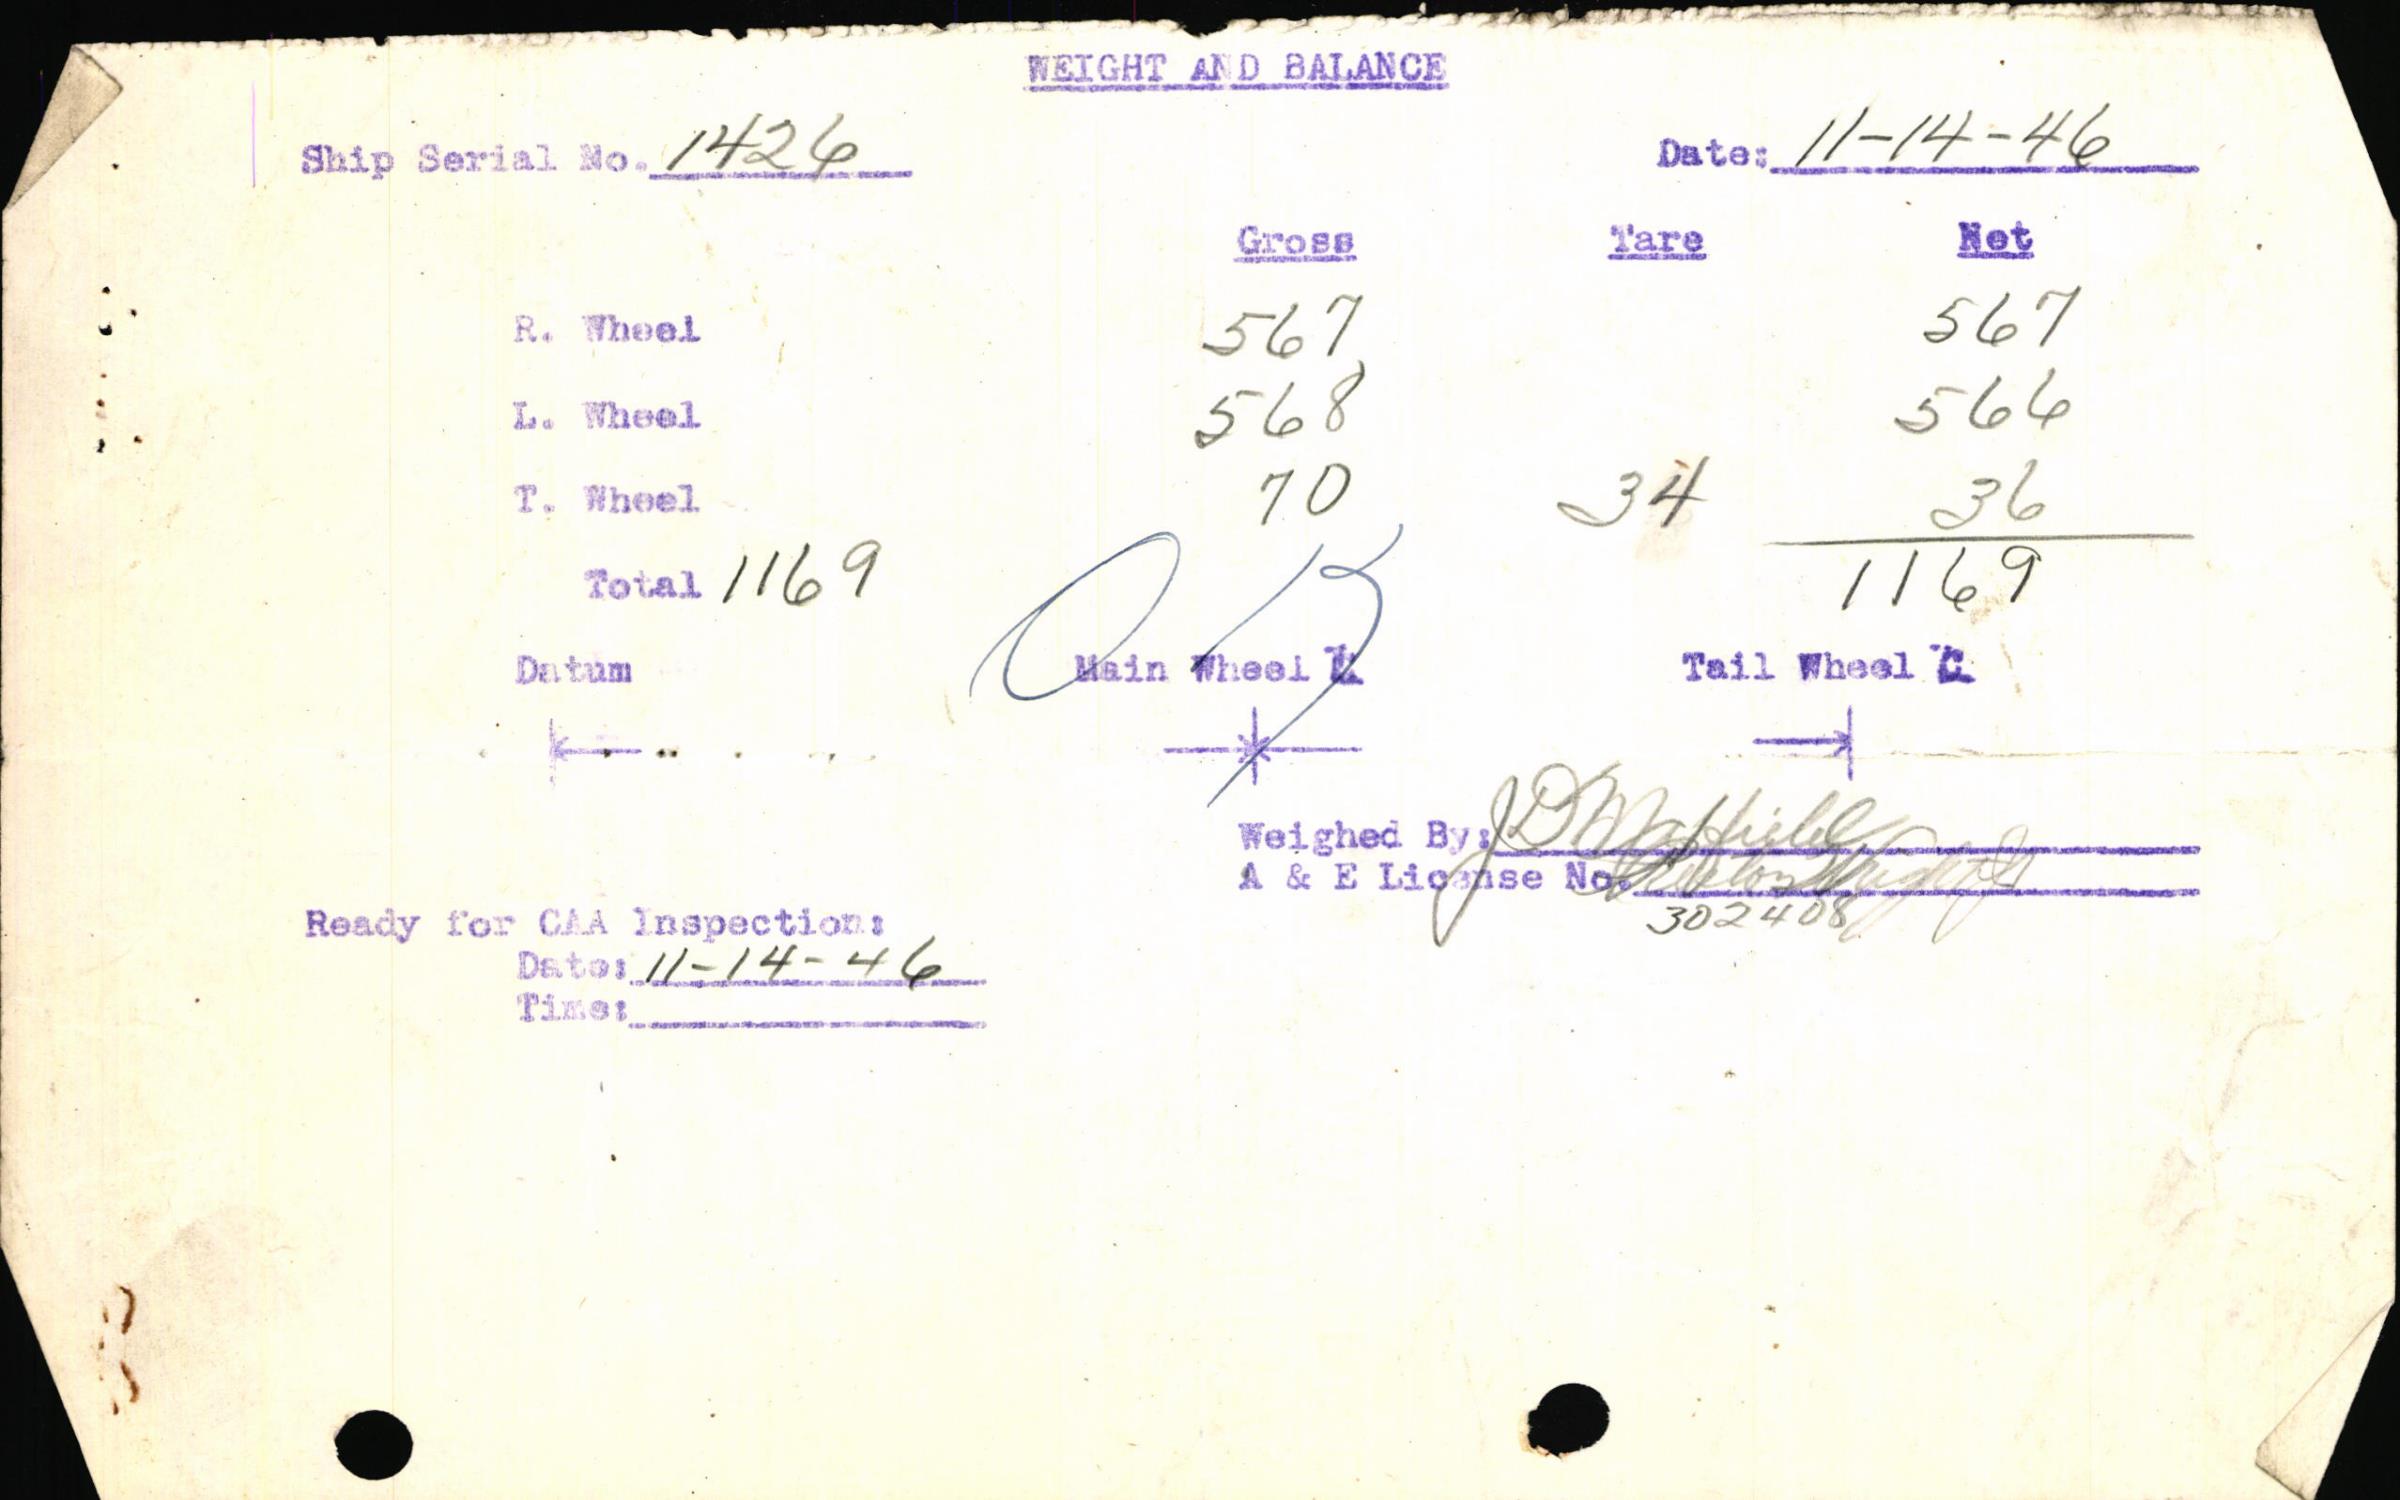 WEIGHT AND BALANCE
Ship Serial No. 1426 Date: 11-14-46
Gross Tare Net
R. Wheel 567 567
L. Wheel 568 566
T. Wheel 70 34 36
Total 1169 1169
OK
Datum Main Wheel Tail Wheel C
Weighed By: J D
A & E License No.
302408
Ready for CAA Inspection:
Date: 11-14-46
Time: